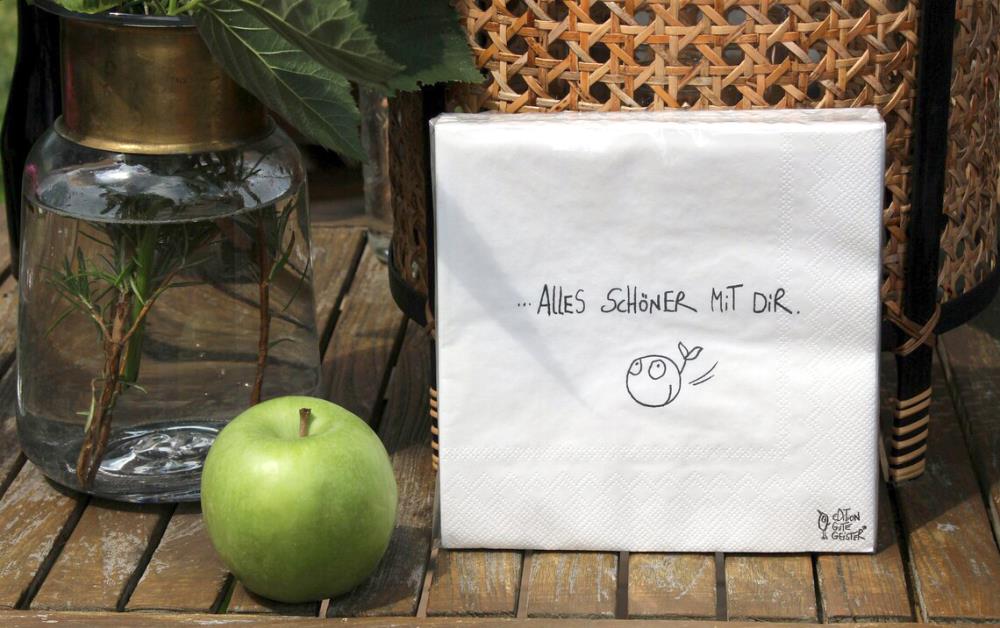 ...ALLES SCHÖNER MIT DIR.
EDITION
GUTE
GEISTER